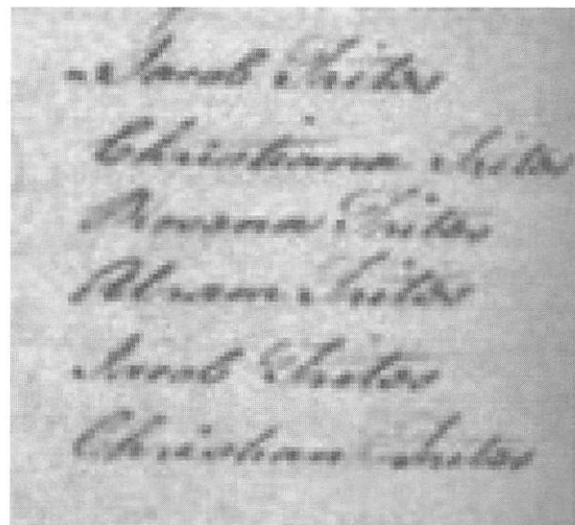 Jacob Trites
Christiana Trites
Rosana Trites
Abram Trites
Jacob Trites
Christian Trites